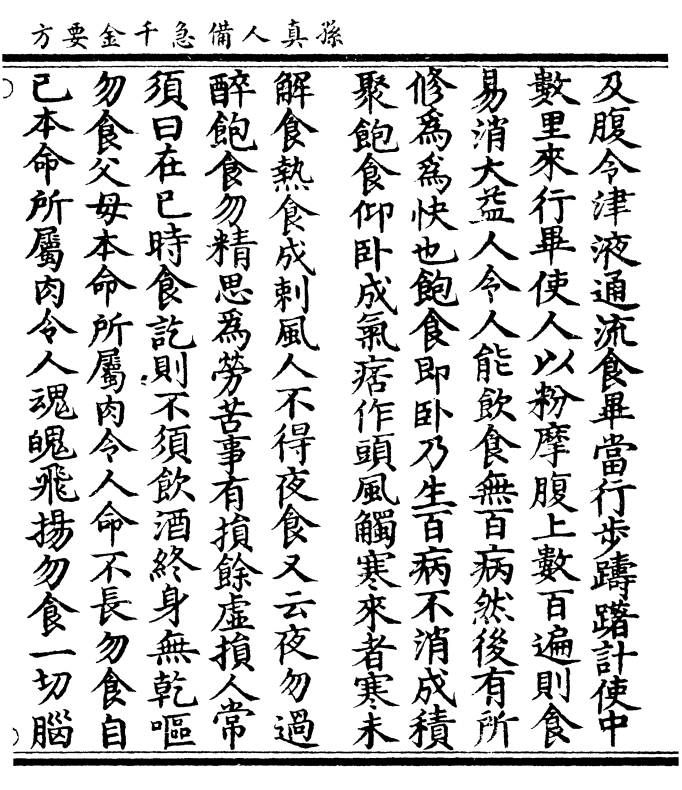 孫真人備急千金要方
及腹令津液通流食畢當行步躊躇計使中
數里來行畢使人以粉摩腹上數百遍則食
易消大益人令人能飲食無百病然後有所
修爲爲快也飽食即卧乃生百病不消成積
聚飽食仰卧成氣痞作頭風觸寒來者寒未
解食熱食成刺風人不得夜食又云夜勿過
醉飽食勿精思爲勞苦事有損餘虛損人常
須日在巳時食訖則不須飲酒終身無乾嘔
勿食父母本命所屬肉令人命不長勿食自
己本命所屬肉令人魂魄飛揚勿食一切腦